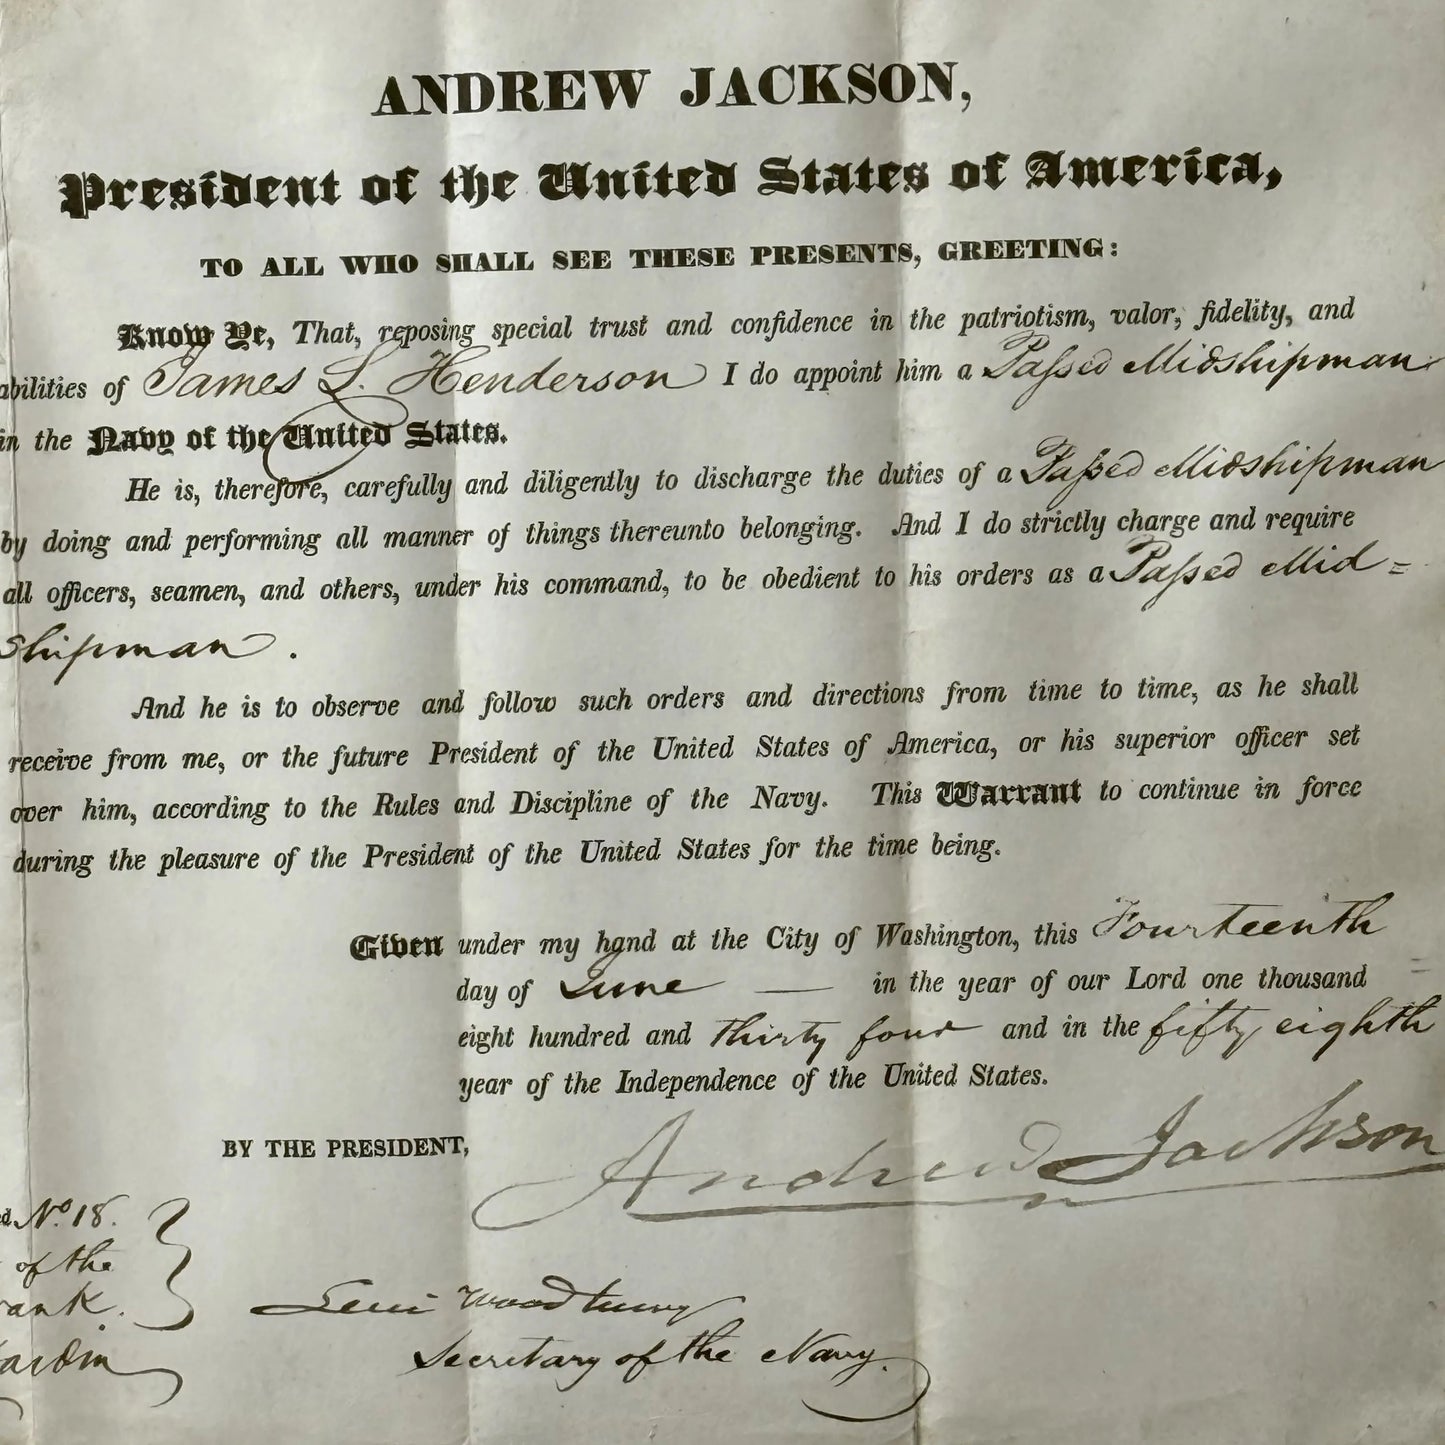 ANDREW JACKSON,
President of the United States of America,
TO ALL WHO SHALL SEE THESE PRESENTS, GREETING:
Know Ye, That, reposing special trust and confidence in the patriotism, valor, fidelity, and
abilities of James L. Henderson I do appoint him a Passed Midshipman
in the Navy of the United States.
He is, therefore, carefully and diligently to discharge the duties of a Passed Midshipman
by doing and performing all manner of things thereunto belonging. And I do strictly charge and require
all officers, seamen, and others, under his command, to be obedient to his orders as a Passed Mid=
shipman.
And he is to observe and follow such orders and directions from time to time, as he shall
receive from me, or the future President of the United States of America, or his superior officer set
over him, according to the Rules and Discipline of the Navy. This Warrant to continue in force
during the pleasure of the President of the United States for the time being.
Given under my hand at the City of Washington, this Fourteenth
day of June — in the year of our Lord one thousand
eight hundred and thirty four and in the fifty eighth
year of the Independence of the United States.
Andrew Jackson
BY THE PRESIDENT,
No. 18.
of the
Levi Woodbury
Secretary of the Navy.